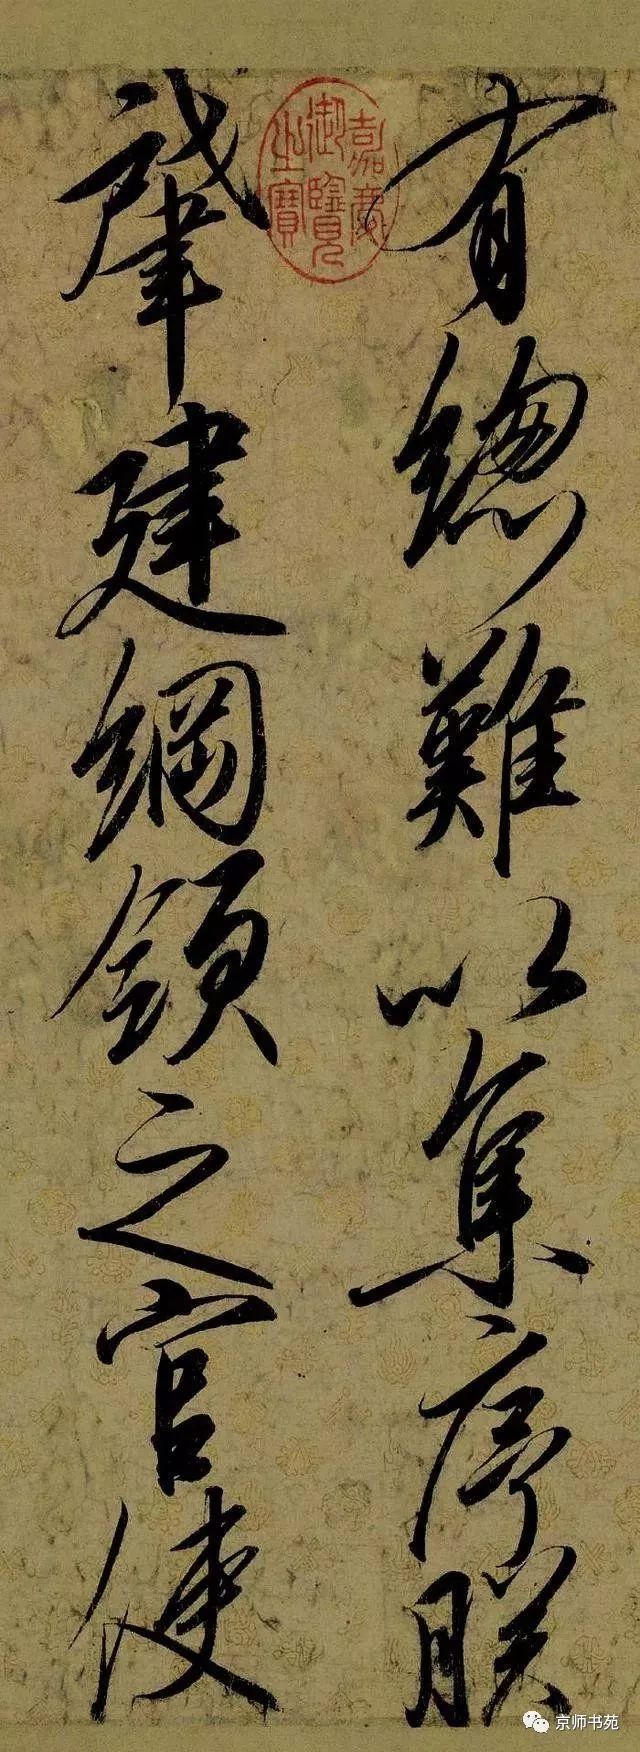 有總難以集序朕
肇建綱領之官使
嘉慶
御覽
之寶
京师书苑